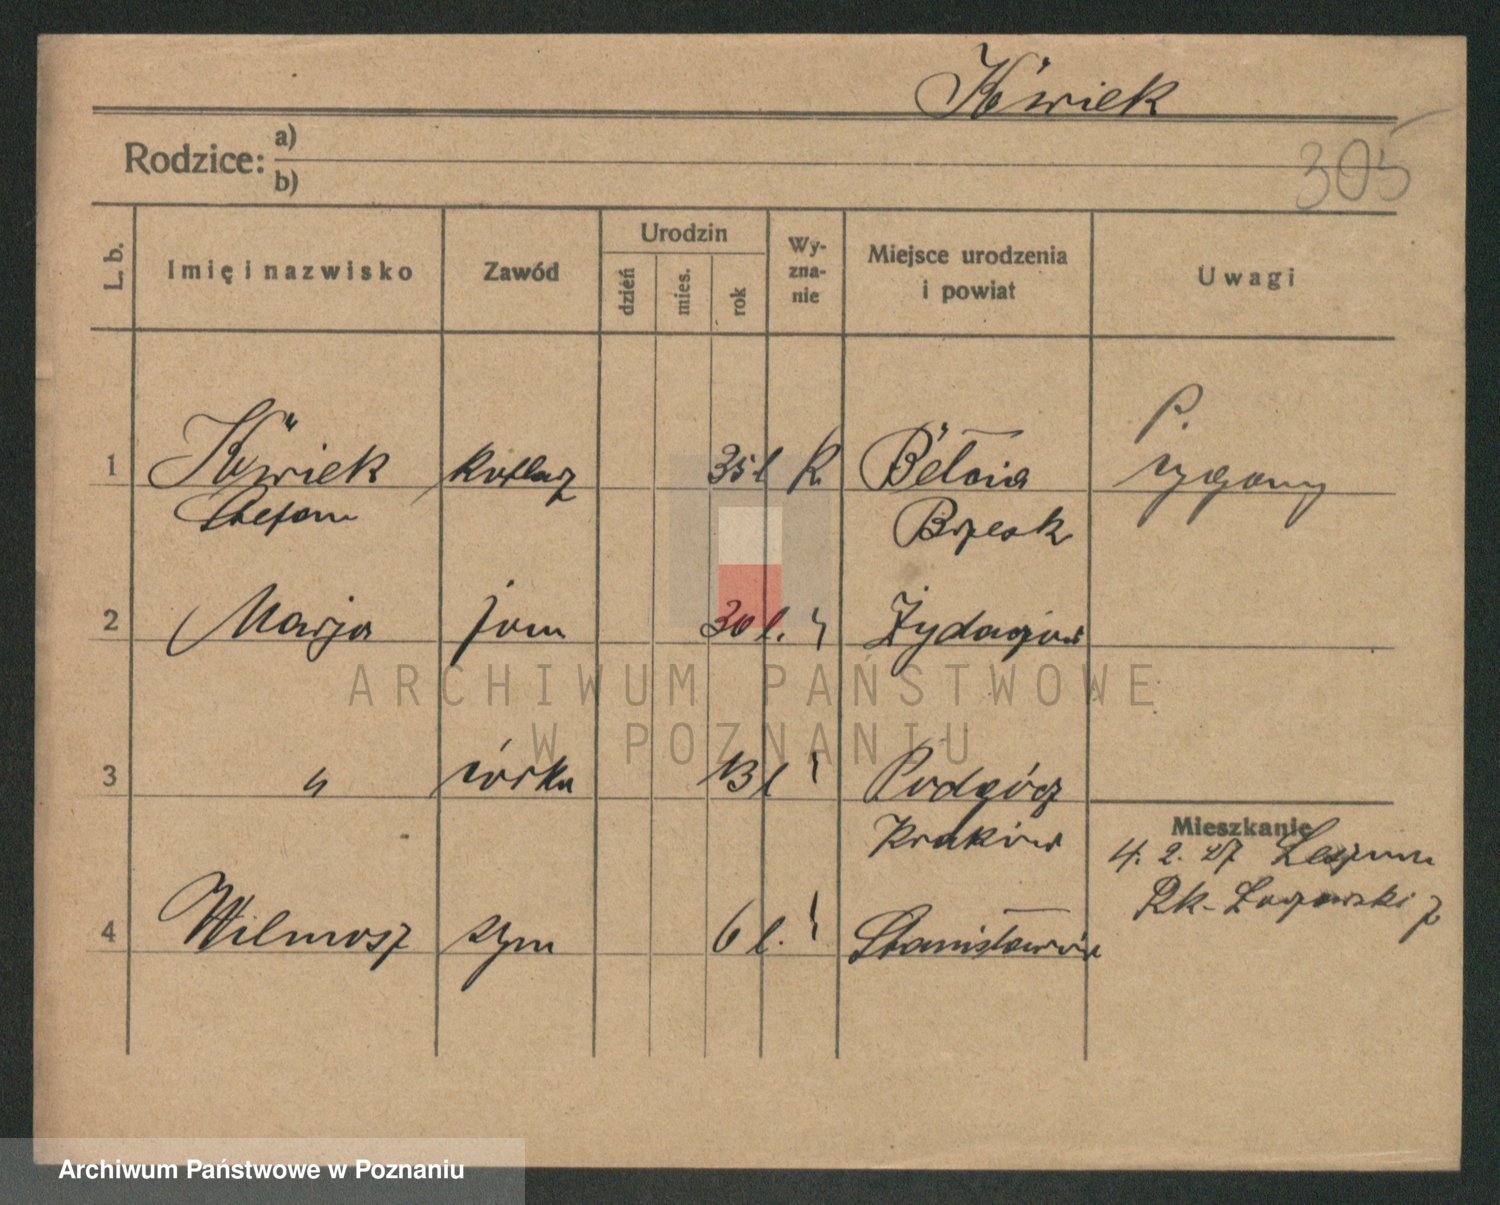 Kwiek
Rodzice: a)
b)
305
L. b. Imię i nazwisko Zawód Urodzin dzień mies. rok Wyznanie Miejsce urodzenia i powiat Uwagi
P.
1 Kwiek kotlarz 35 l R. cygany
Stefan Brzesk
2 Marja żona 30 l. " Żydaczów
ARCHIWUM PAŃSTWOWE
W POZNANIU
3 " córka 13 l " Podgórz
Kraków
Mieszkanie
4. 2. 27 Leszno
Rk-
4 Wilmosz syn 6 l. " Stanisławów
Archiwum Państwowe w Poznaniu